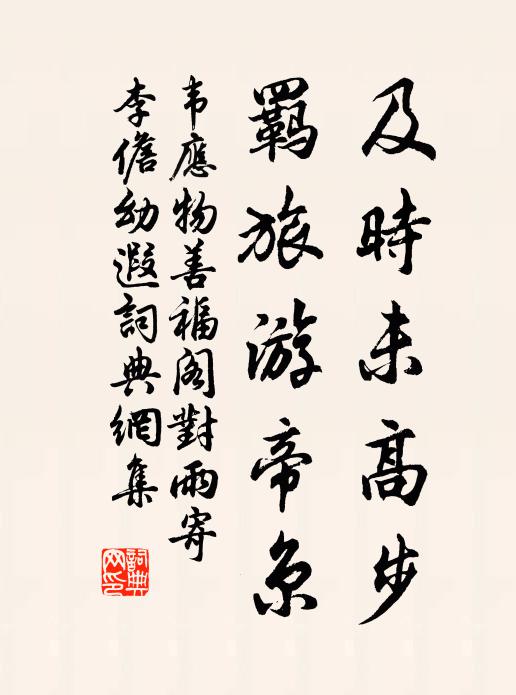 及時未高步
羇旅游帝京
韦應物善福阁對雨寄
李儋幼遐詞典網集
詞典
网印